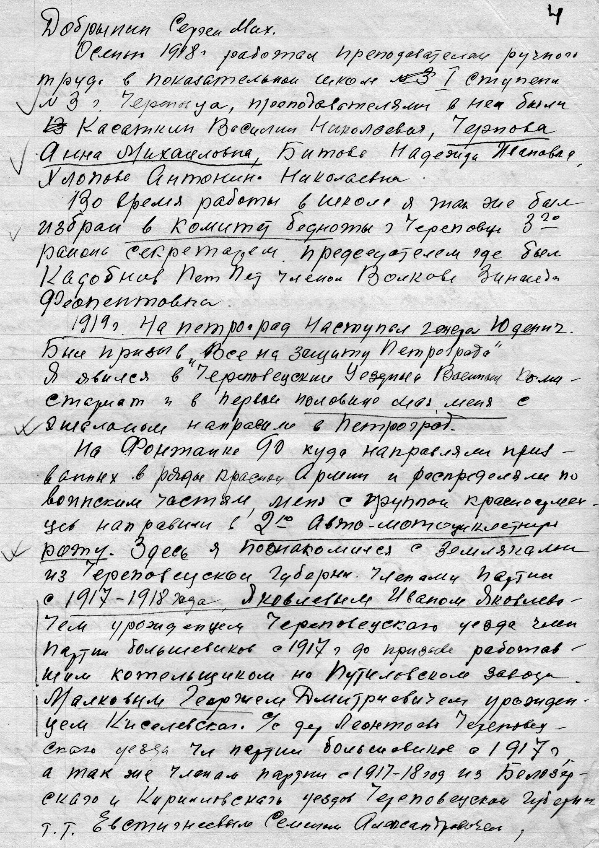 4
Добрынин Сергей Мих.
Осенью 1918г работал преподавателем ручного
труда в показательной школе №3 I ступени
№3 г. Череповца, преподавателями в ней были
Касаткин Василий Николаевич, Чернова
Анна Михайловна, Битова Надежда Ивановна,
Хлопова Антонина Николаевна.
Во время работы в школе я так же был
избран в комитет бедноты г Череповца 3го
района секретарем, председателем где был
Кадобнов Пет Пет членом Волкова Зинаида
Феопентовна.
1919г. На Петроград наступал генерал Юденич.
Был призыв "Все на защиту Петрограда"
Я явился в Череповецкий Уездный Военный Коми-
ссариат и в первой половине мая меня с
эшалоном направили в Петроград.
На Фонтанке 90 куда направляли приз-
ванных в ряды красной Армии и распределяли по
воинским частям, меня с группой красноармей-
цев направили в 2ю Авто-мотоциклетную
роту. Здесь я познакомился с земляками
из Череповецкой Губернии членами партии
с 1917-1918 года, Яковлевым Иваном Яковлеви-
чем урожденцем Череповецкого уезда член
партии большевиков с 1917г до призыва работав-
шим котельщиком на Путиловском заводе
Малковым Георгием Дмитриевичем урожден-
цем Киселевского с/с дер Леонтьево Черепове-
цкого уезда чл партии большевиков с 1917г
а так же членом партии с 1917-18 год из Белозер-
ского и Кирилловского уездов Череповецкой Губернии
т.т. Евстигнеевым Семеном Александровичем,